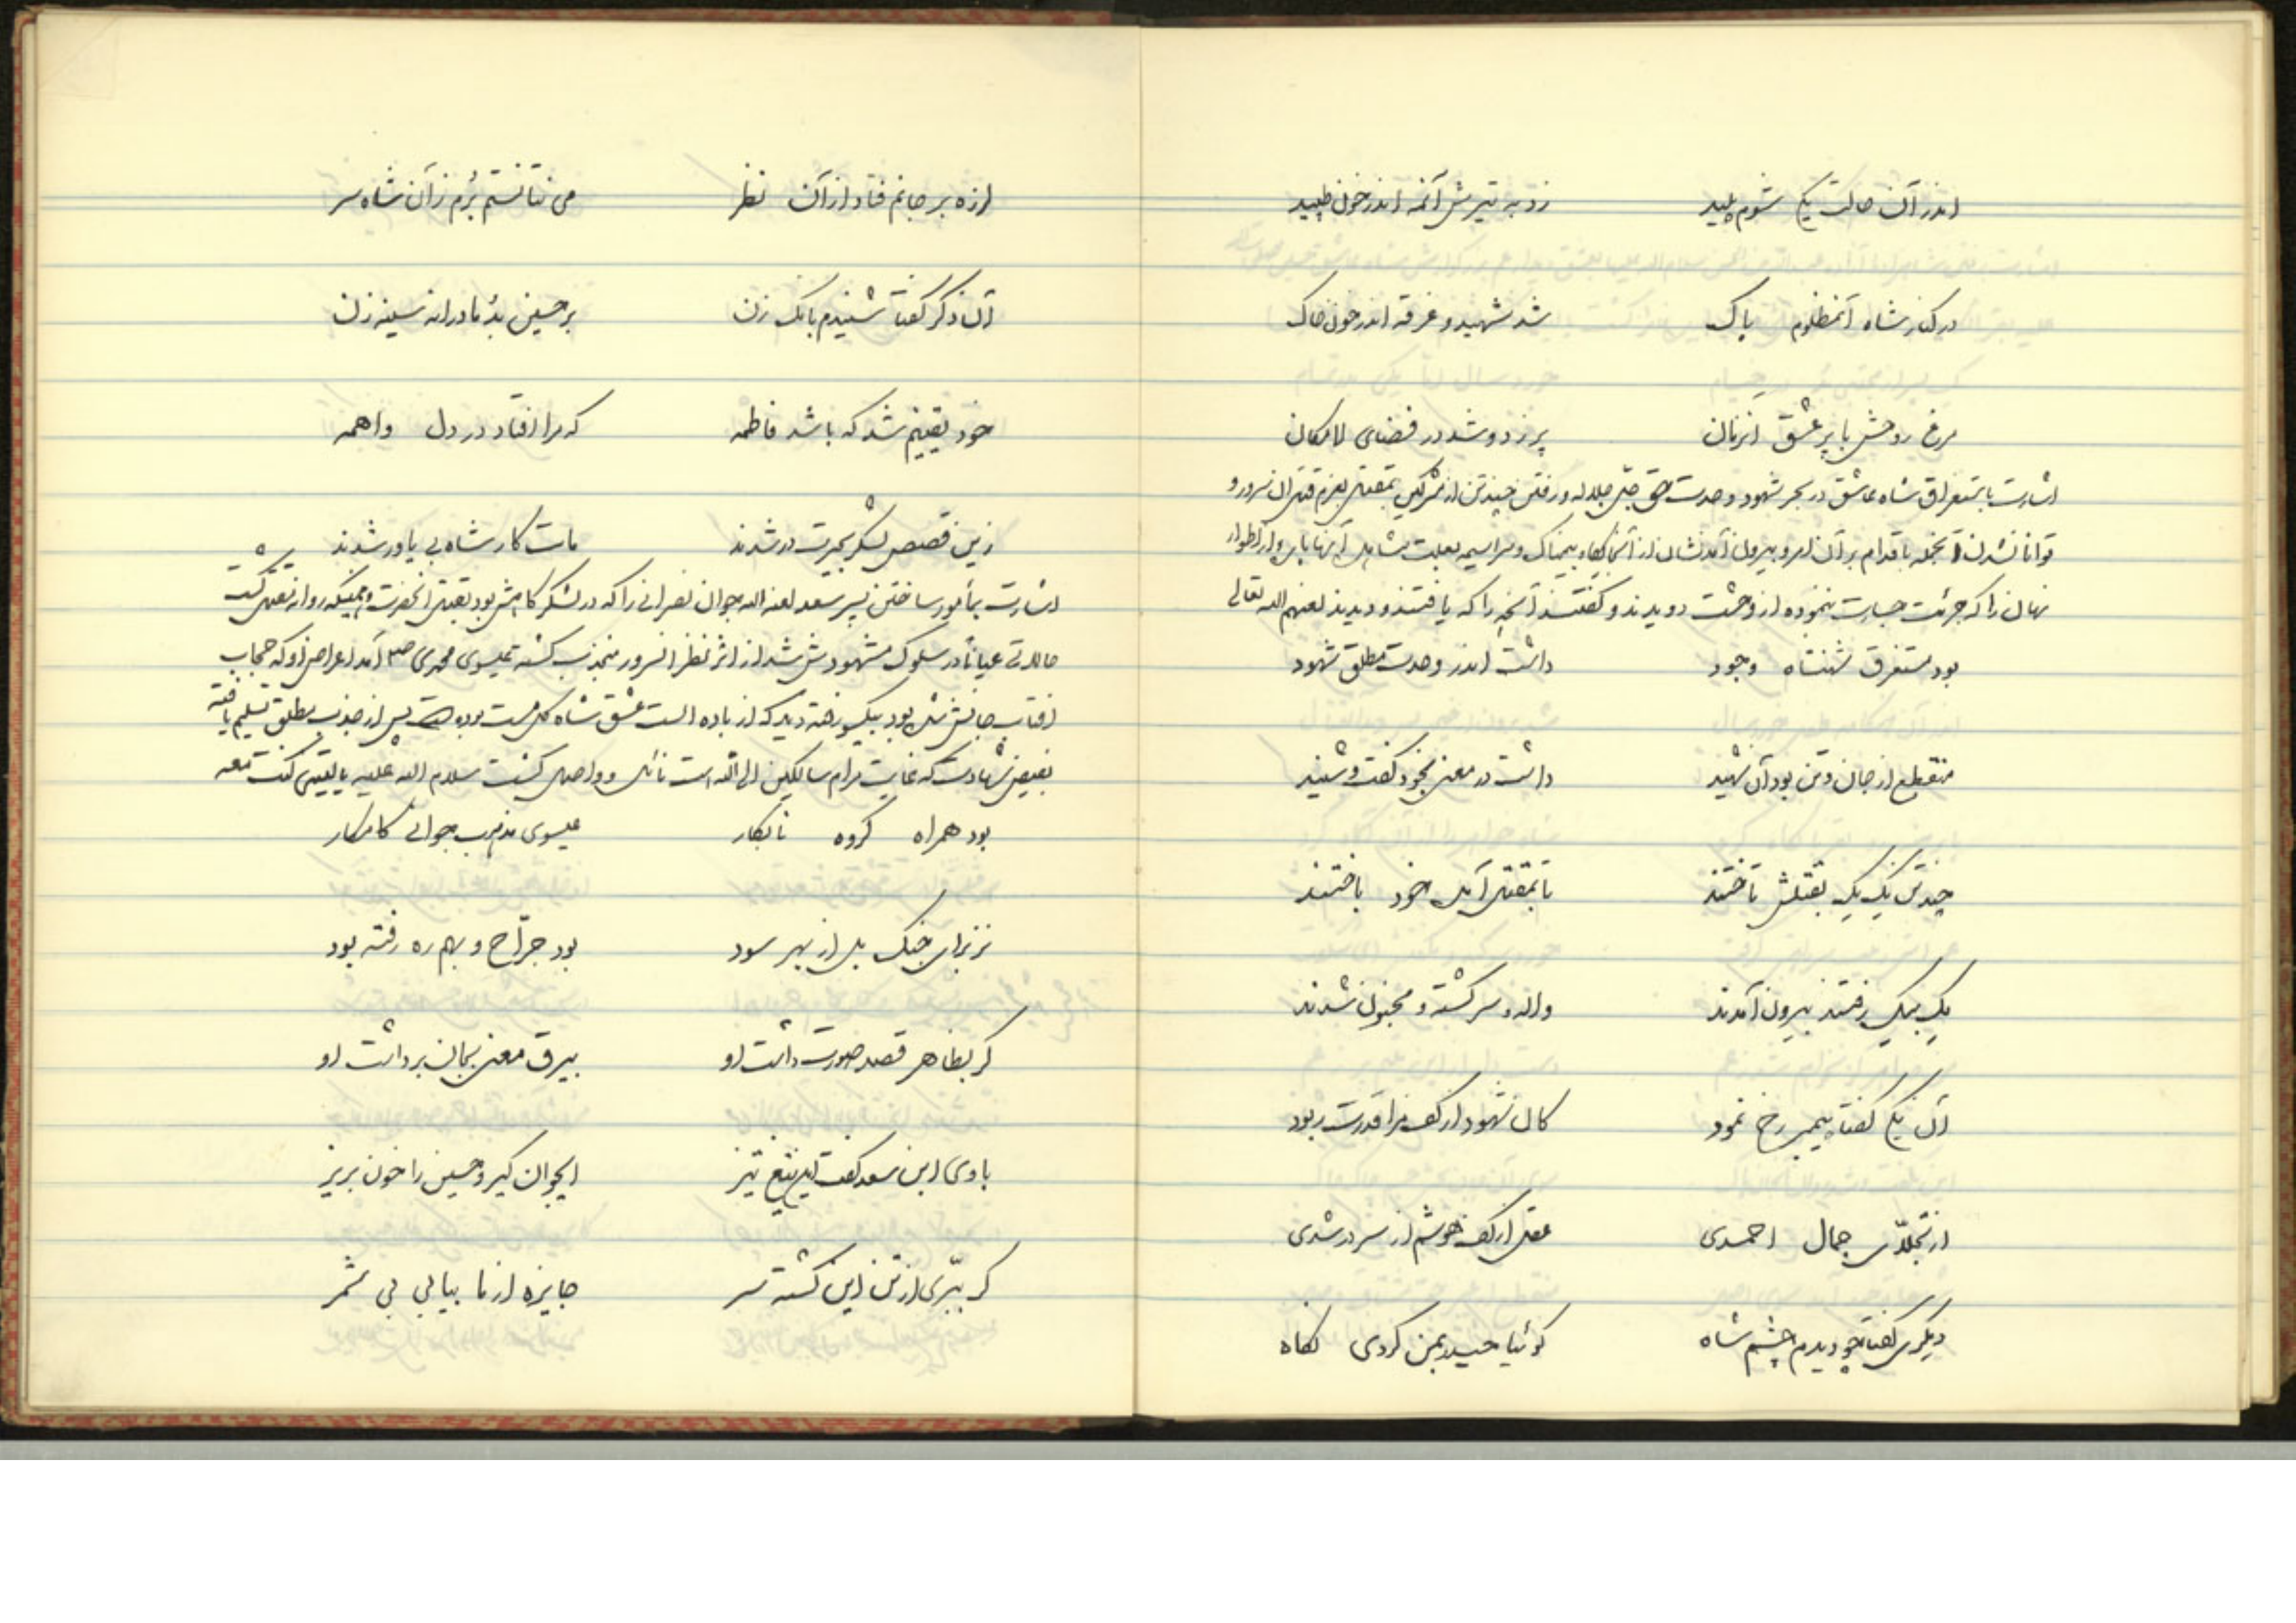 اندر آن حالت یکی شوم پلید زد به تیرش آنمه اندر خون طپید
در کنار شاه آنمظلوم پاک شد شهید و غرقه اندر خون خاک
مرغ روحش با پر عشق انزمان پر زد و شد در فضای لامکان
اشارت باستغراق شاه عاشق در بحر شهود وحدت حق جل جلاله و رفتن چند تن از مشرکین بمقتل بعزم قتل آن سرور و
توانا نشدن آنجمله باقدام بر آن امر و بیرون آمدنشان از آنجایگاه بیمناک و سراسیمه بعلت مشاهده
نهان را که جرئت جسارت ننموده از وحشت دویدند و گفتند آنچه را که یافتند و دیدند لعنهم الله تعالی
بود مستغرق شهنشاه وجود داشت اندر وحدت مطلق شهود
منقطع از جان و تن بود آن شهید داشت در معنی بخود گفت و شنید
چند تن یک یک بقتلش تاختند تا بمقتل آمده خود باختند
یک بیک رفتند بیرون آمدند واله و سرگشته و مجنون شدند
آن یکی گفتا پیمبر رخ نمود کان شهود از کف مرا قدرت ربود
از تجلای جمال احمدی عقل از کف هوشم از سر در شدی
دیگری گفتا چو دیدم چشم شاه گوئیا حیدر بمن کردی نگاه
لرزه بر جانم فتاد از آن نظر می نتانستم برم زآن شاه سر
آن دگر گفتا شنیدم بانگ زن بر حسین بد مادرانه سینه زن
خود یقینم شد که باشد فاطمه که مرا افتاد در دل واهمه
زین قصص لشکر بحیرت در شدند مات کار شاه بی یاور شدند
اشارت بمأمور ساختن پسر سعد لعنه الله جوان نصرانی را که در لشکر کامش بود بقتل آنحضرت و همینکه روانه مقتل گشت
حالات عیانا در سلوک مشهودش شد از اثر نظر آنسرور منجذب گشته عیسوی محمدی ص آمد اعراض او که حجاب
افتاب جانش شده بود بیکسو رفته دید که از باده الست عشق شاه گل مست بوده است پس از جذب مطلق تسلیم یافته
بفیض شهادت که غایت مرام سالکین الی الله است نائل و واصل گشت سلام الله علیه یا لیتنی کنت معه
بود همراه گروه نابکار عیسوی مذهب جوانی کامکار
نز برای جنگ بل از بهر سود بود جراح و بهمره رفته بود
گر بظاهر قصد صورت داشت او بیرق معنی بجان برداشت او
با وی ابن سعد گفت این تیغ تیز ایجوان گیر و حسین را خون بریز
گر ببری از تن این کشته سر جایزه از ما بیابی بی شمر